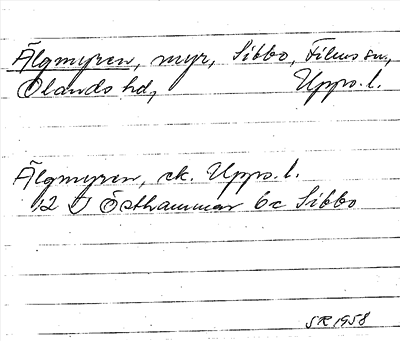 Älgmyren, myr, Sibbo, Films sn.,
Olands hd, Upps. l.
Älgmyren, ek. Upps. l.
12 I Östhammar 6c Sibbo
SR 1958